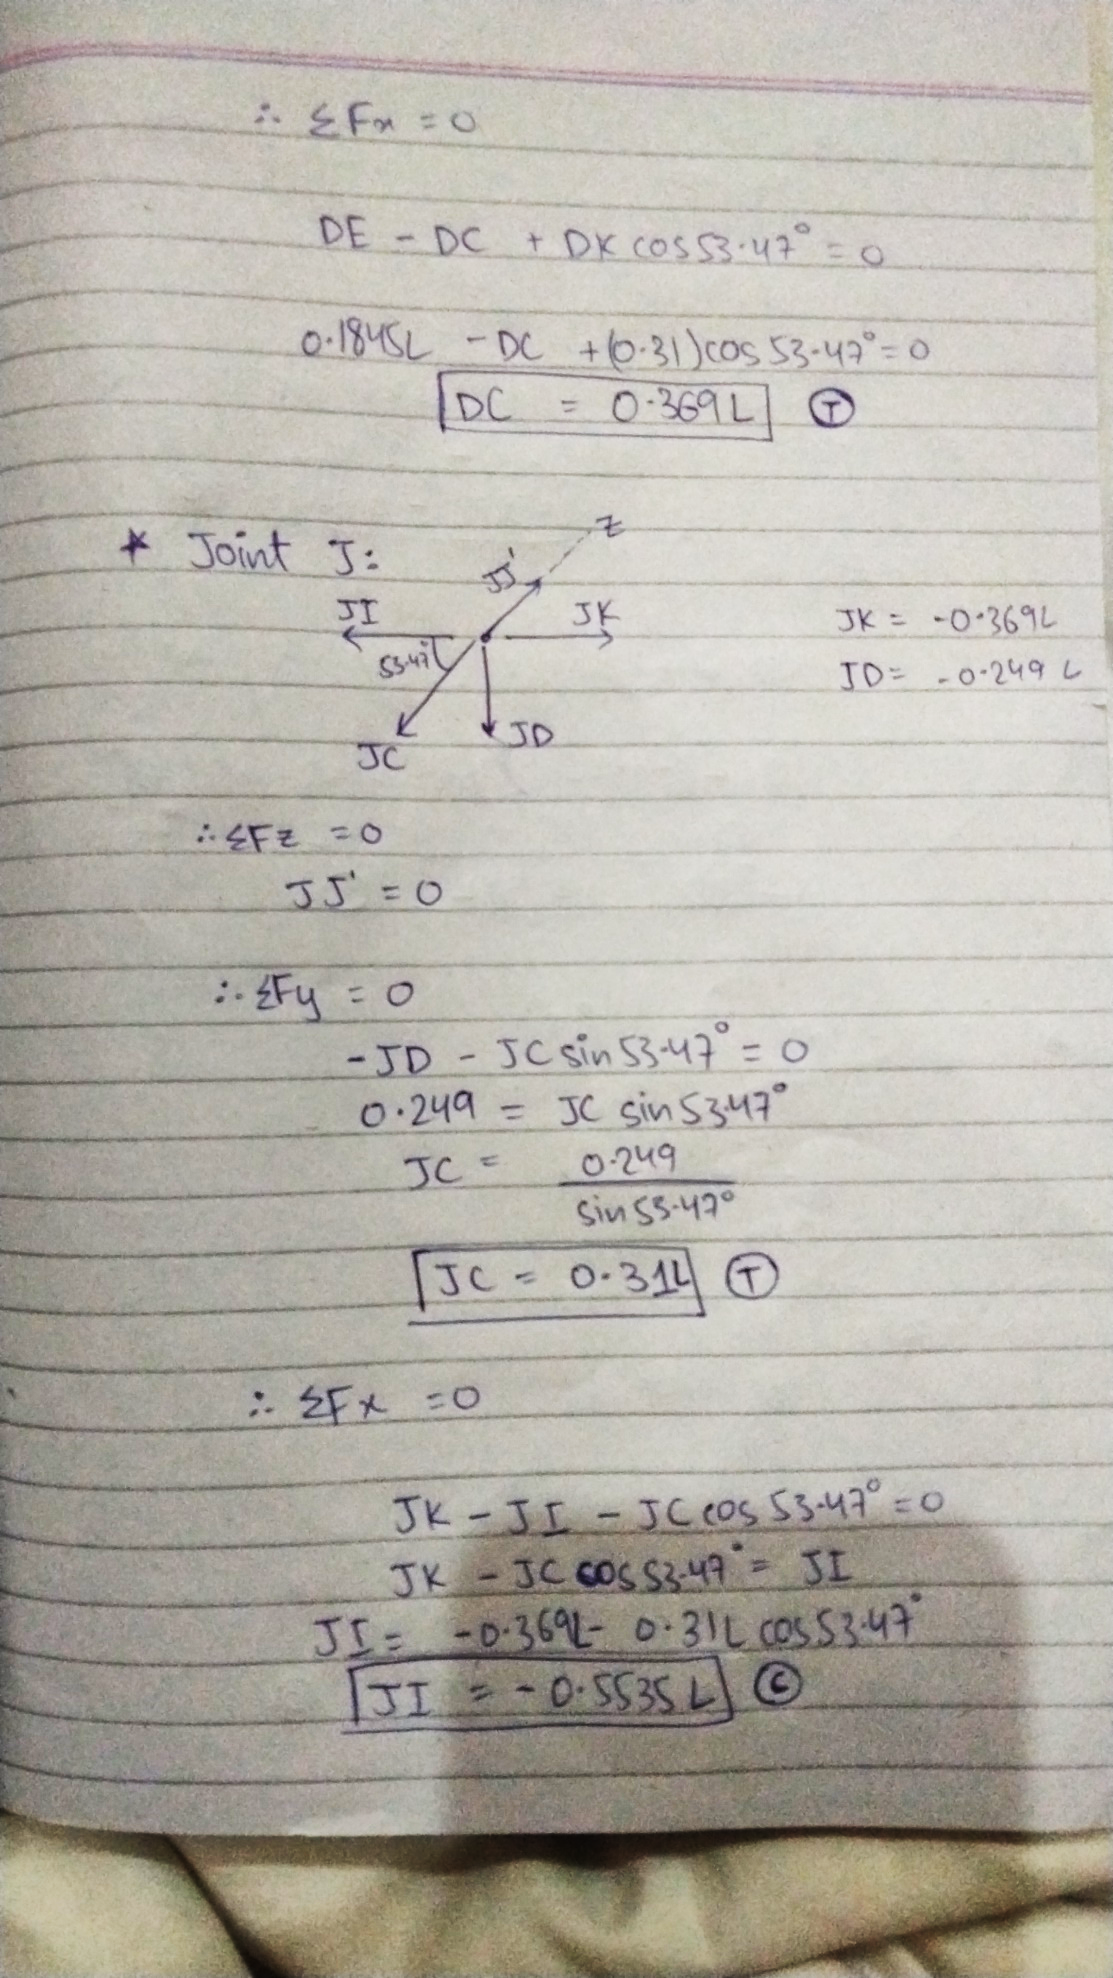 ∴ ΣFx = 0
DE - DC + DK cos 53.47° = 0
0.1845L - DC + (0.31) cos 53.47° = 0
DC = 0.369L (T)
* Joint J:
Z
JJ'
JI
JK
53.47°
JC
JD
JK = -0.369L
JD = -0.249 L
∴ ΣFz = 0
JJ' = 0
∴ ΣFy = 0
-JD - JC sin 53.47° = 0
0.249 = JC sin 53.47°
JC = 0.249
sin 53.47°
JC = 0.31L (T)
∴ ΣFx = 0
JK - JI - JC cos 53.47° = 0
JK - JC cos 53.47° = JI
JI = -0.369L - 0.31L cos 53.47°
JI = -0.5535 L (C)